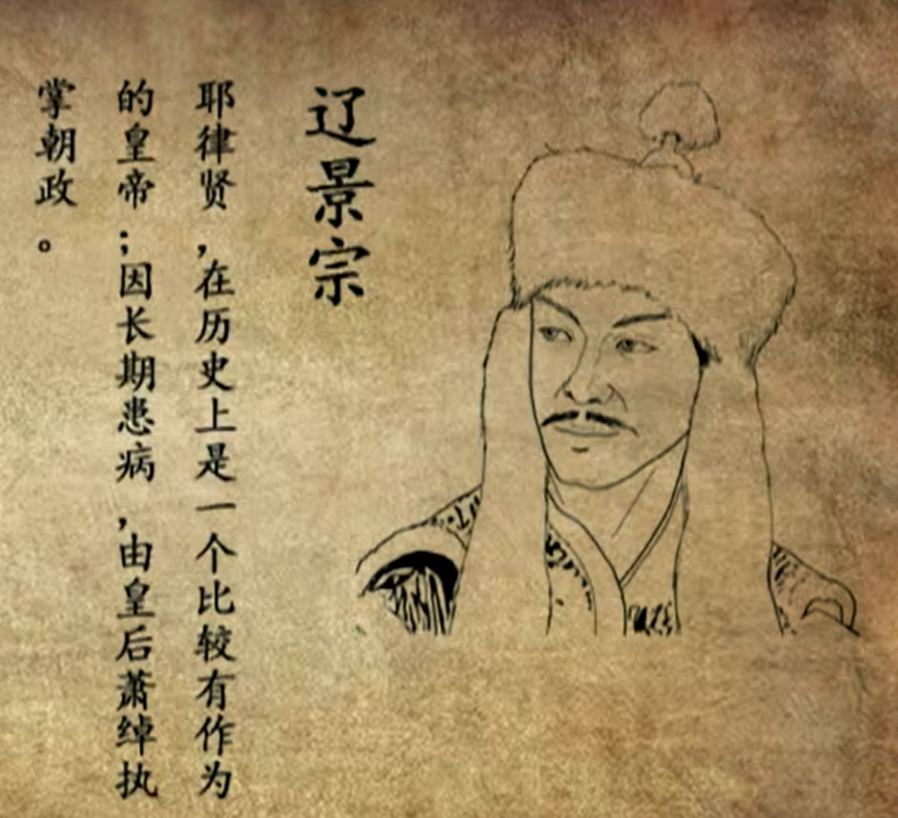 辽景宗
耶律贤，在历史上是一个比较有作为
的皇帝；因长期患病，由皇后萧绰执
掌朝政。